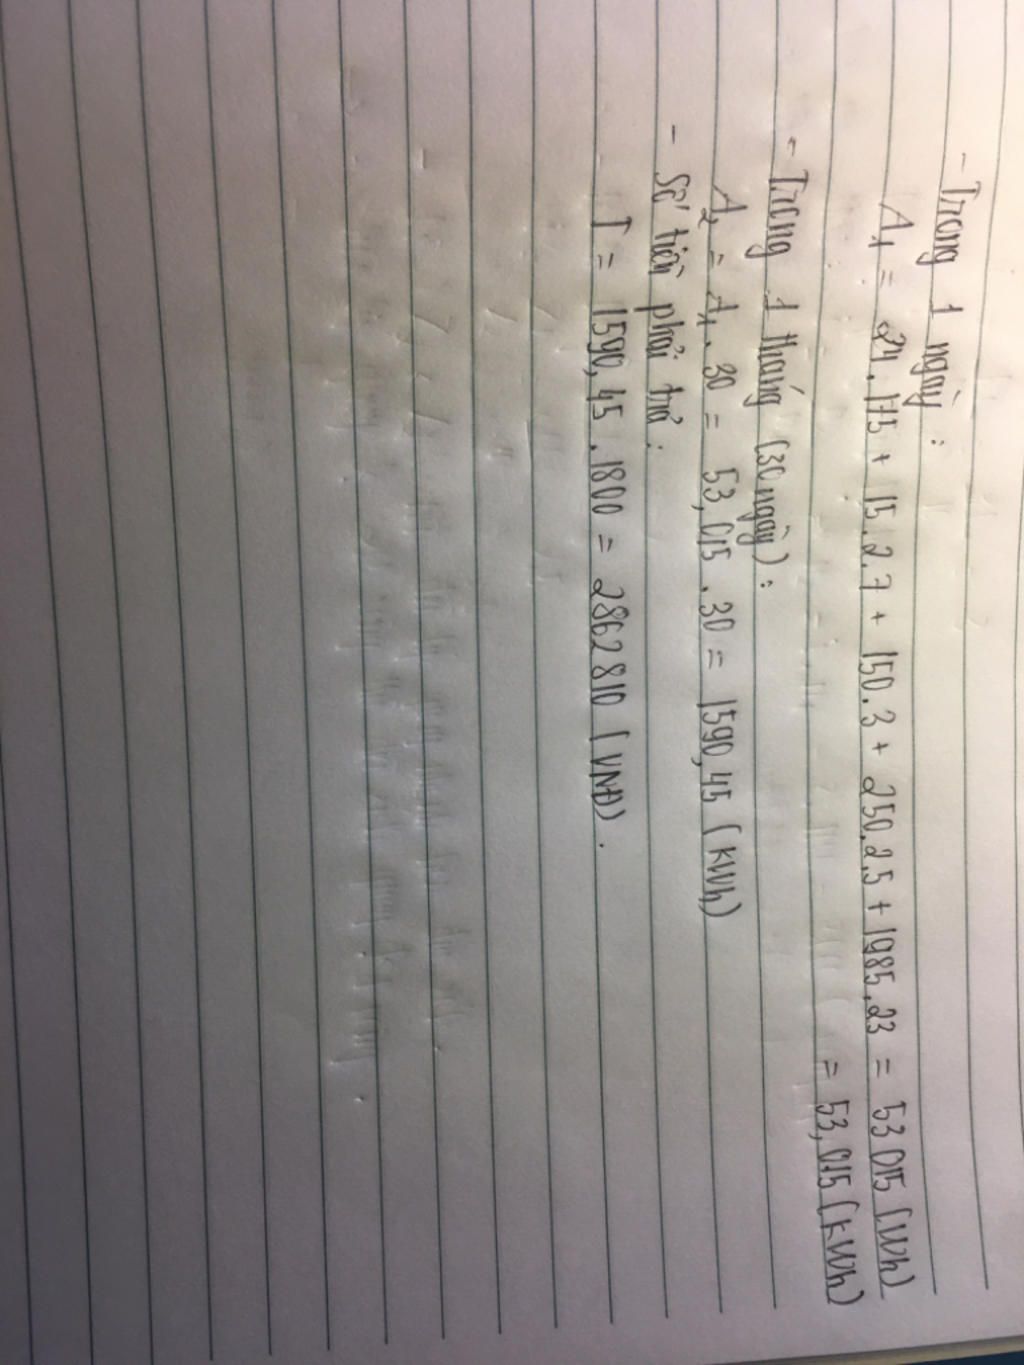 - Trong 1 ngày :
A₁ = 24.175 + 15.2.7 + 150.3 + 250.2.5 + 1985.23 = 53 015 (Wh)
= 53,015 (KWh)
- Trong 1 tháng (30 ngày) :
A₂ = A₁ . 30 = 53,015 . 30 = 1590,45 (KWh)
- Số tiền phải trả :
T = 1590,45 . 1800 = 2862 810 (VNĐ) .